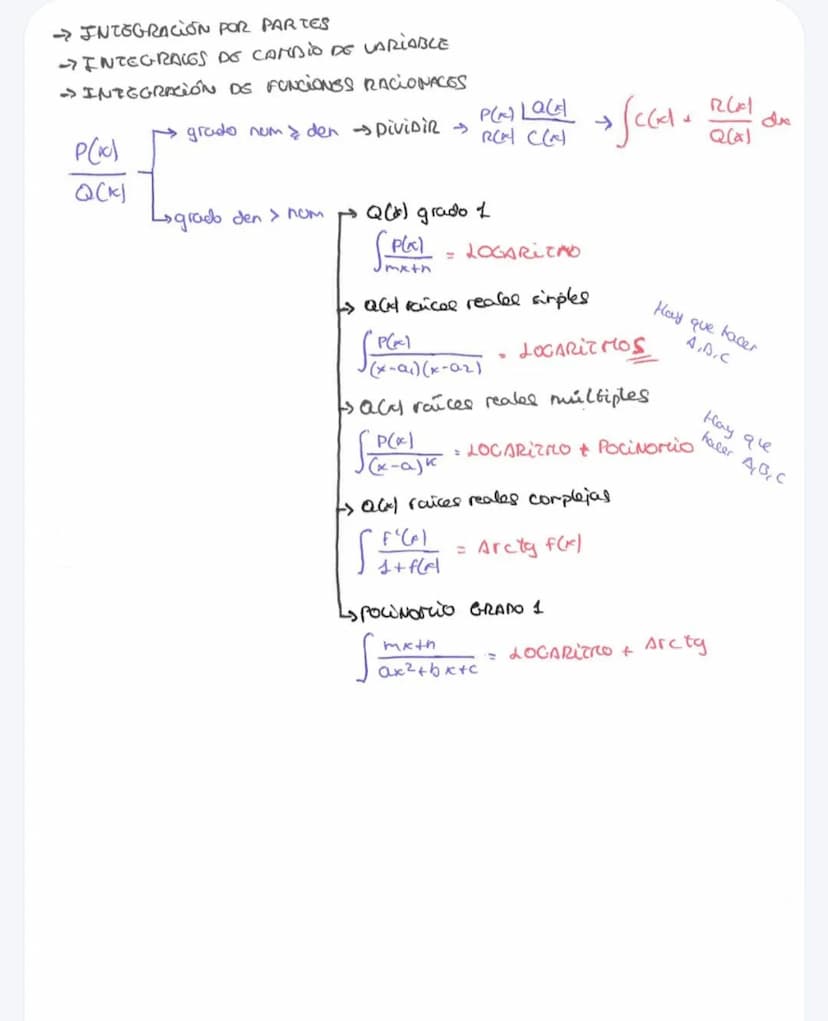 → INTEGRACIÓN POR PARTES
→ INTEGRALES DE CAMBIO DE VARIABLE
→ INTEGRACIÓN DE FUNCIONES RACIONALES
P(x)/Q(x)
→ grado num ≥ den → DIVIDIR → P(x) | Q(x) R(x) C(x) → ∫ C(x) + R(x)/Q(x) dx
↳ grado den > num
→ Q(x) grado 1
∫ P(x)/(mx+n) = LOGARITMO
→ Q(x) raíces reales simples
∫ P(x)/((x-a₁)(x-a₂)) = LOGARITMOS
Hay que hacer
A, B, C
→ Q(x) raíces reales múltiples
∫ P(x)/(x-a)ᵏ = LOGARITMO + POLINOMIO
Hay que
hacer A, B, C
→ Q(x) raíces reales complejas
∫ F'(x)/(1+f(x)) = Arctg f(x)
↳ POLINOMIO GRADO 1
∫ (mx+n)/(ax²+bx+c) = LOGARITMO + Arctg